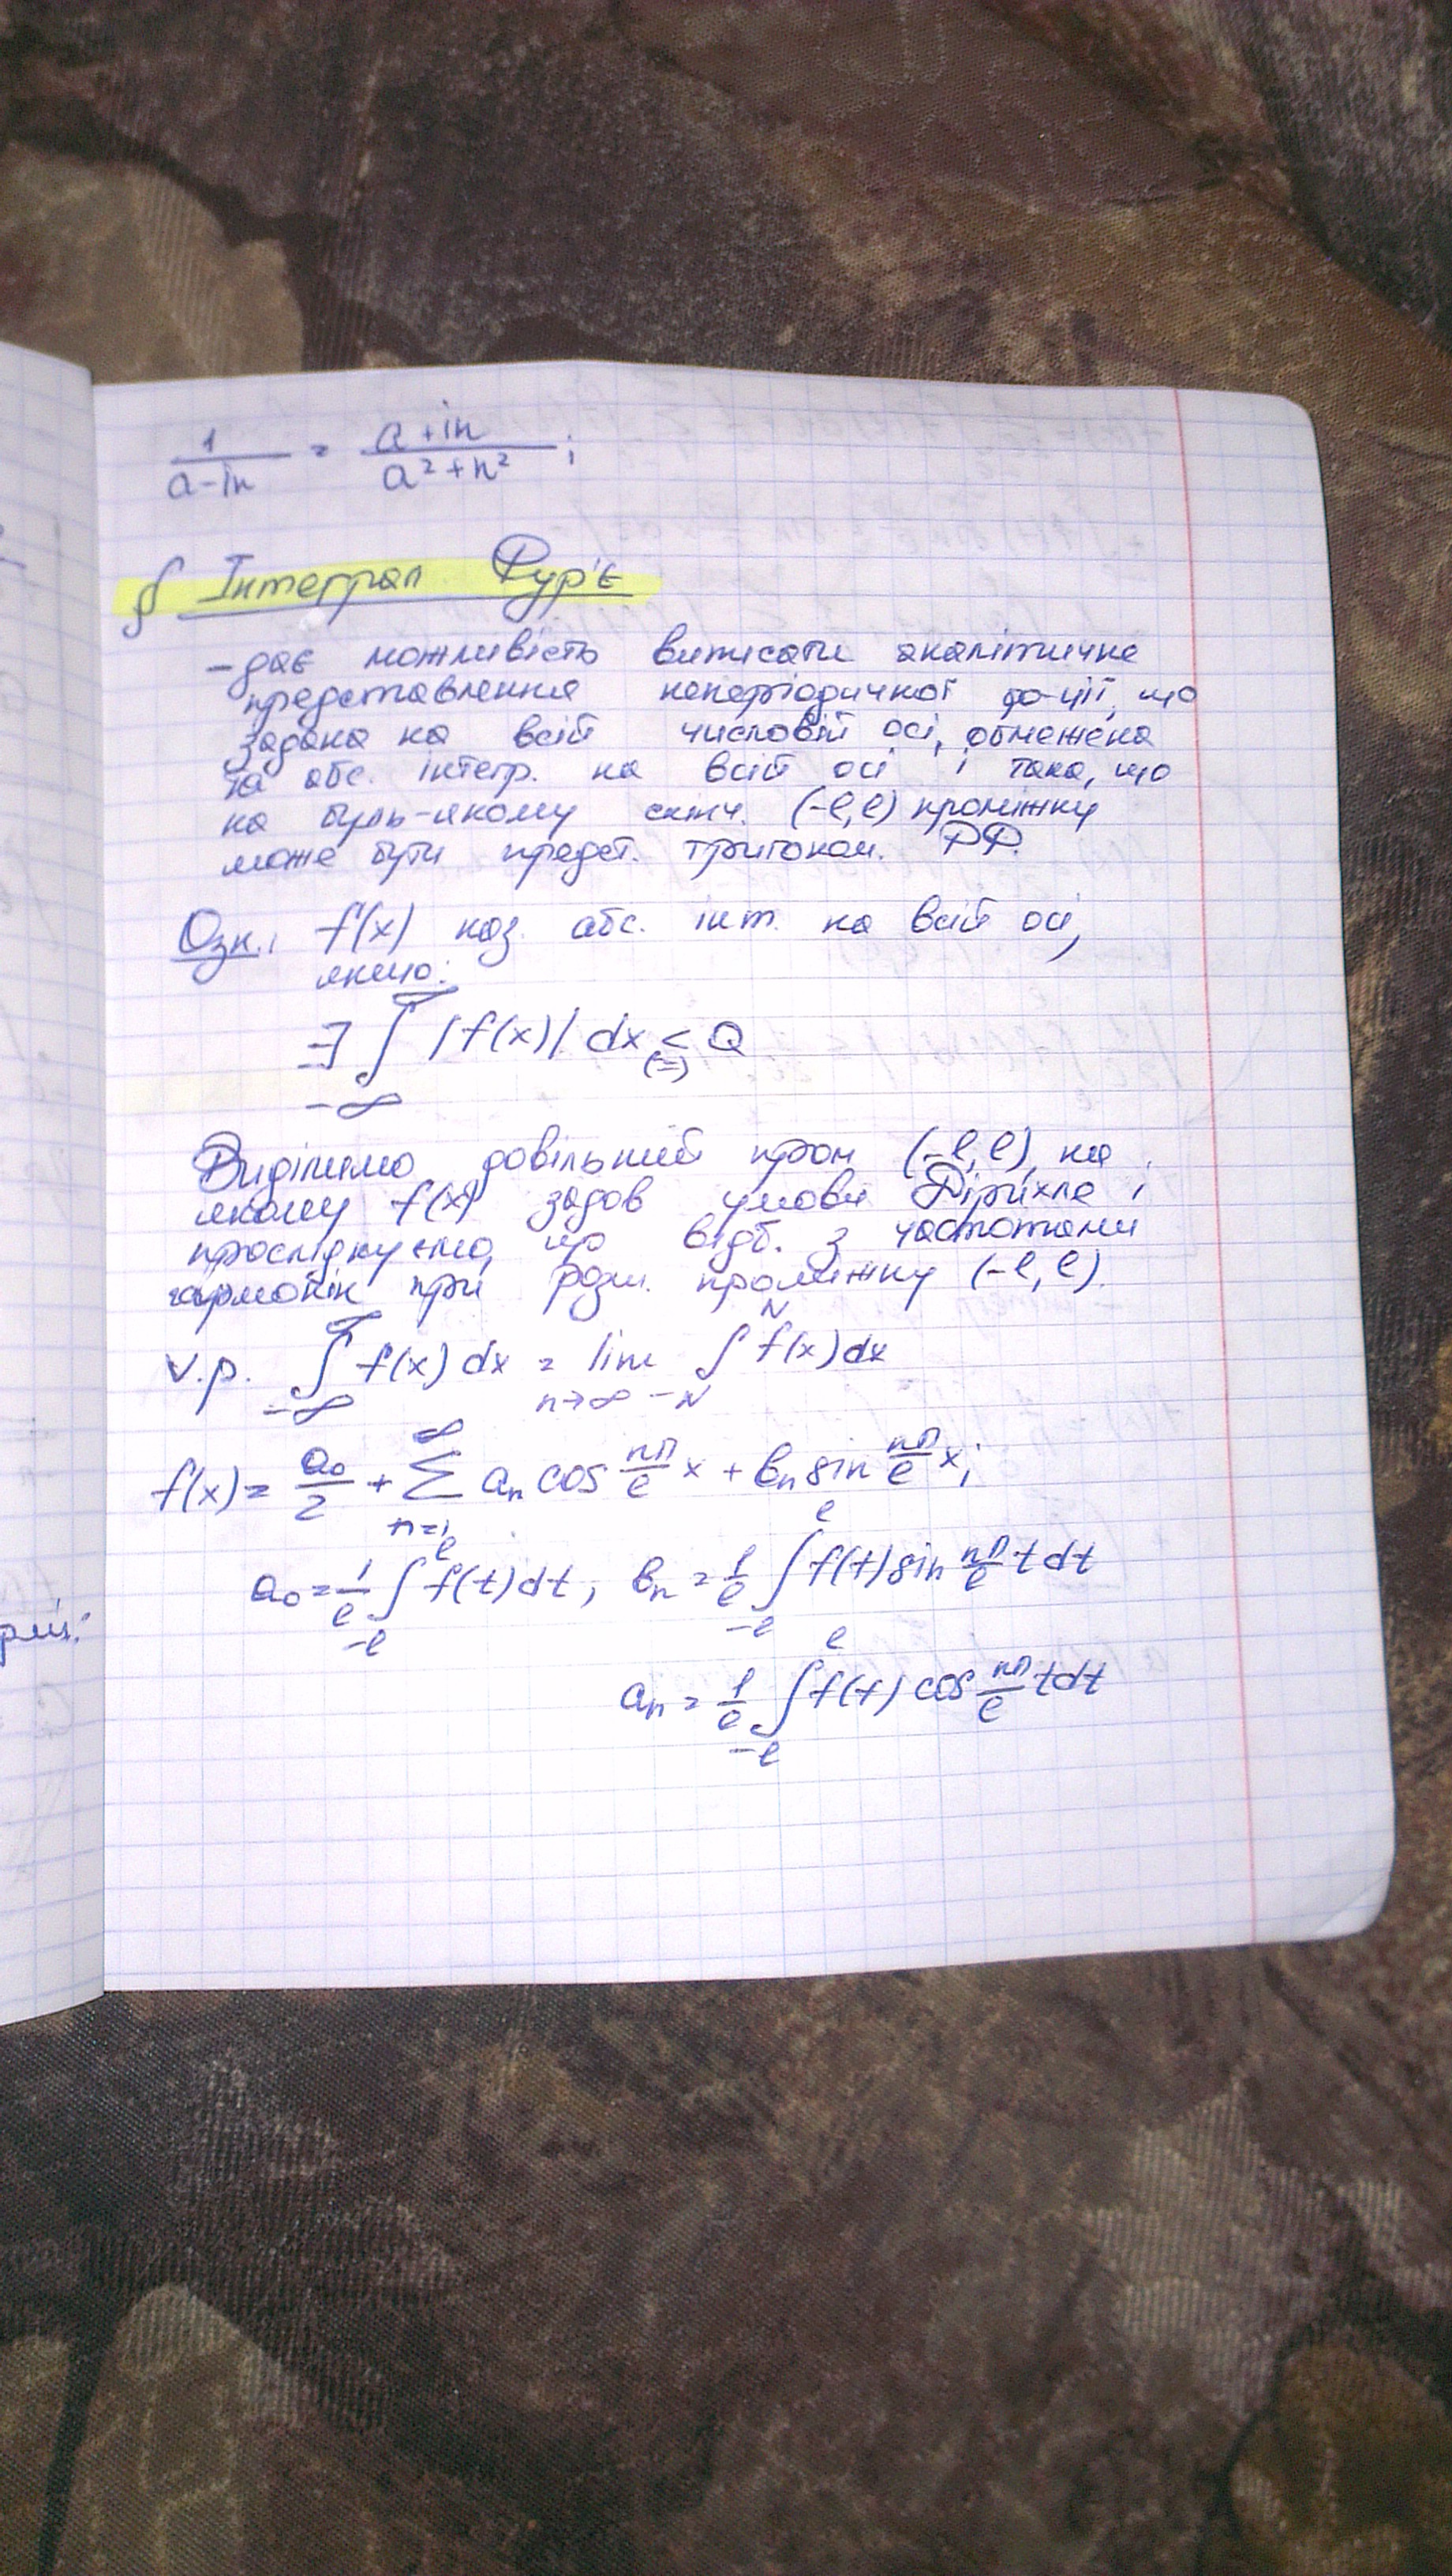 1/(a-in) = (a+in)/(a²+n²);
§ Інтеграл Фур'є
– дає можливість виписати аналітичне
представлення неперіодичної ф-ції, що
задана на всій числовій осі, обмежена
та абс. інтегр. на всій осі і така, що
на будь-якому скінч. (-l, l) проміжку
може бути предст. тригоном. РФ.
Озн.: f(x) наз. абс. інт. на всій осі,
якщо:
∃ ∫_{-∞}^{∞} |f(x)| dx <(=) Q
Виділимо довільний пром (-l, l), на
якому f(x) задов умови Діріхле і
прослідкуємо, що відб. з частотами
гармонік при розш. проміжку (-l, l).
v.p. ∫_{-∞}^{∞} f(x) dx = lim_{n→∞} ∫_{-N}^{N} f(x) dx
f(x) = a₀/2 + ∑_{n=1}^{∞} aₙ cos nπ/l x + bₙ sin nπ/l x;
a₀ = 1/l ∫_{-l}^{l} f(t) dt, bₙ = 1/l ∫_{-l}^{l} f(t) sin nπ/l t dt
aₙ = 1/l ∫_{-l}^{l} f(t) cos nπ/l t dt